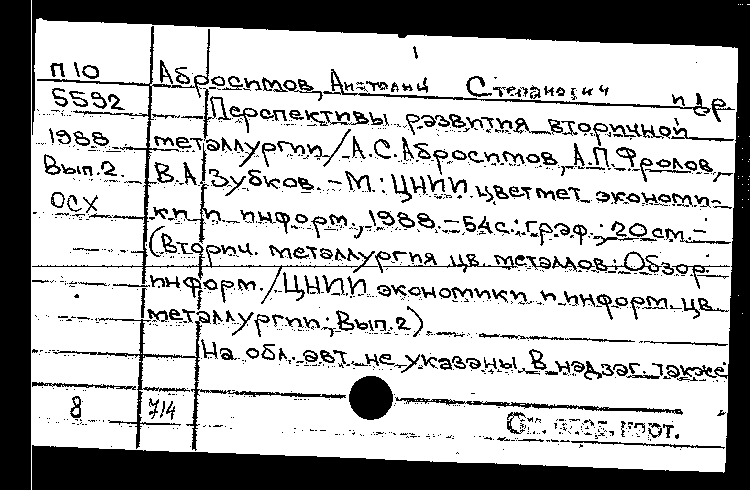 1
П10 Абросимов, Анатолий Степанович и др.
5592 Перспективы развития вторичной
1988 металлургии/А.С.Абросимов, А.П.Фролов,
Вып.2. В.А.Зубков.-М.: ЦНИИ цветмет экономи-
ОСХ ки и информ., 1988.-54с.: граф.; 20см.-
(Вторич. металлургия цв. металлов: Обзор.
информ./ЦНИИ экономики и информ. цв.
металлургии; Вып.2)
На обл. авт. не указаны. В надзаг. также
8 714
См. след. карт.